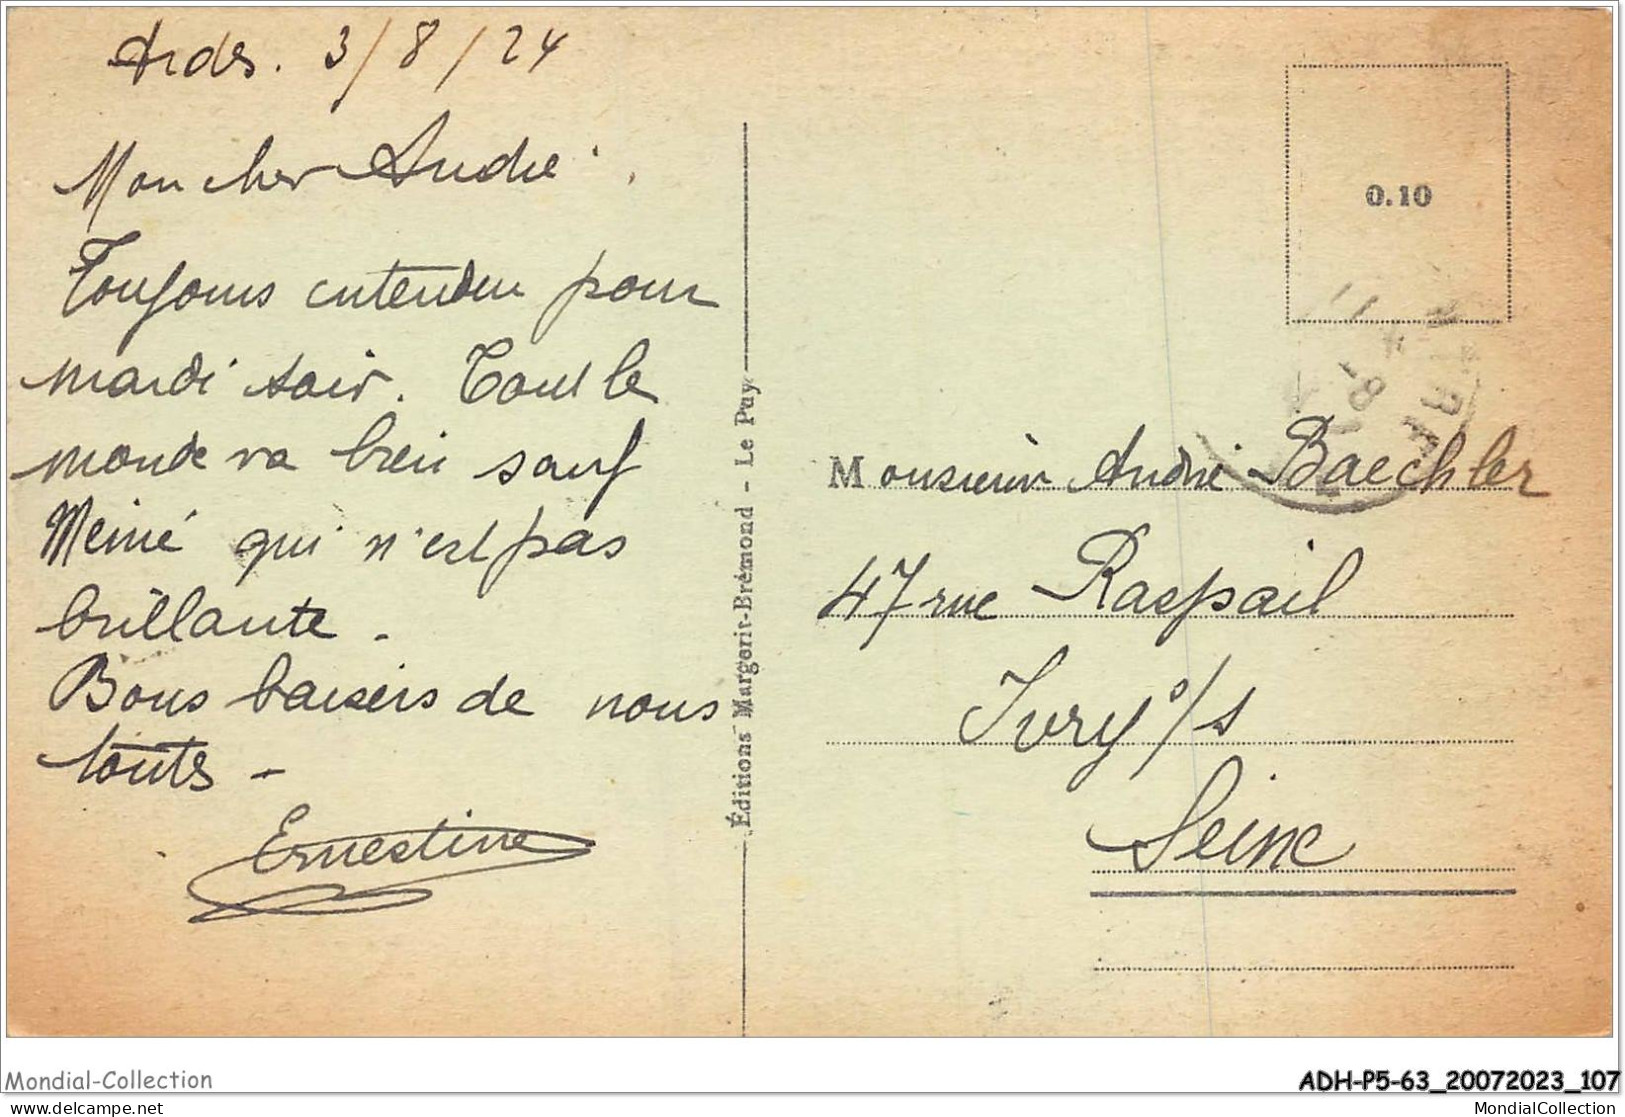 Ardes. 3/8/24
Mon cher André.
Toujours entendu pour
mardi soir. Tout le
monde va bien sauf
Mémé qui n'est pas
brillante.
Bons baisers de nous
touts -
Ernestine
Éditions Margerit-Brémond - Le Puy
0.10
Monsieur André Baechler
47 rue Raspail
Ivry s/s
Seine
Mondial-Collection
ADH-P5-63_20072023_107
www.delcampe.net
MondialCollection